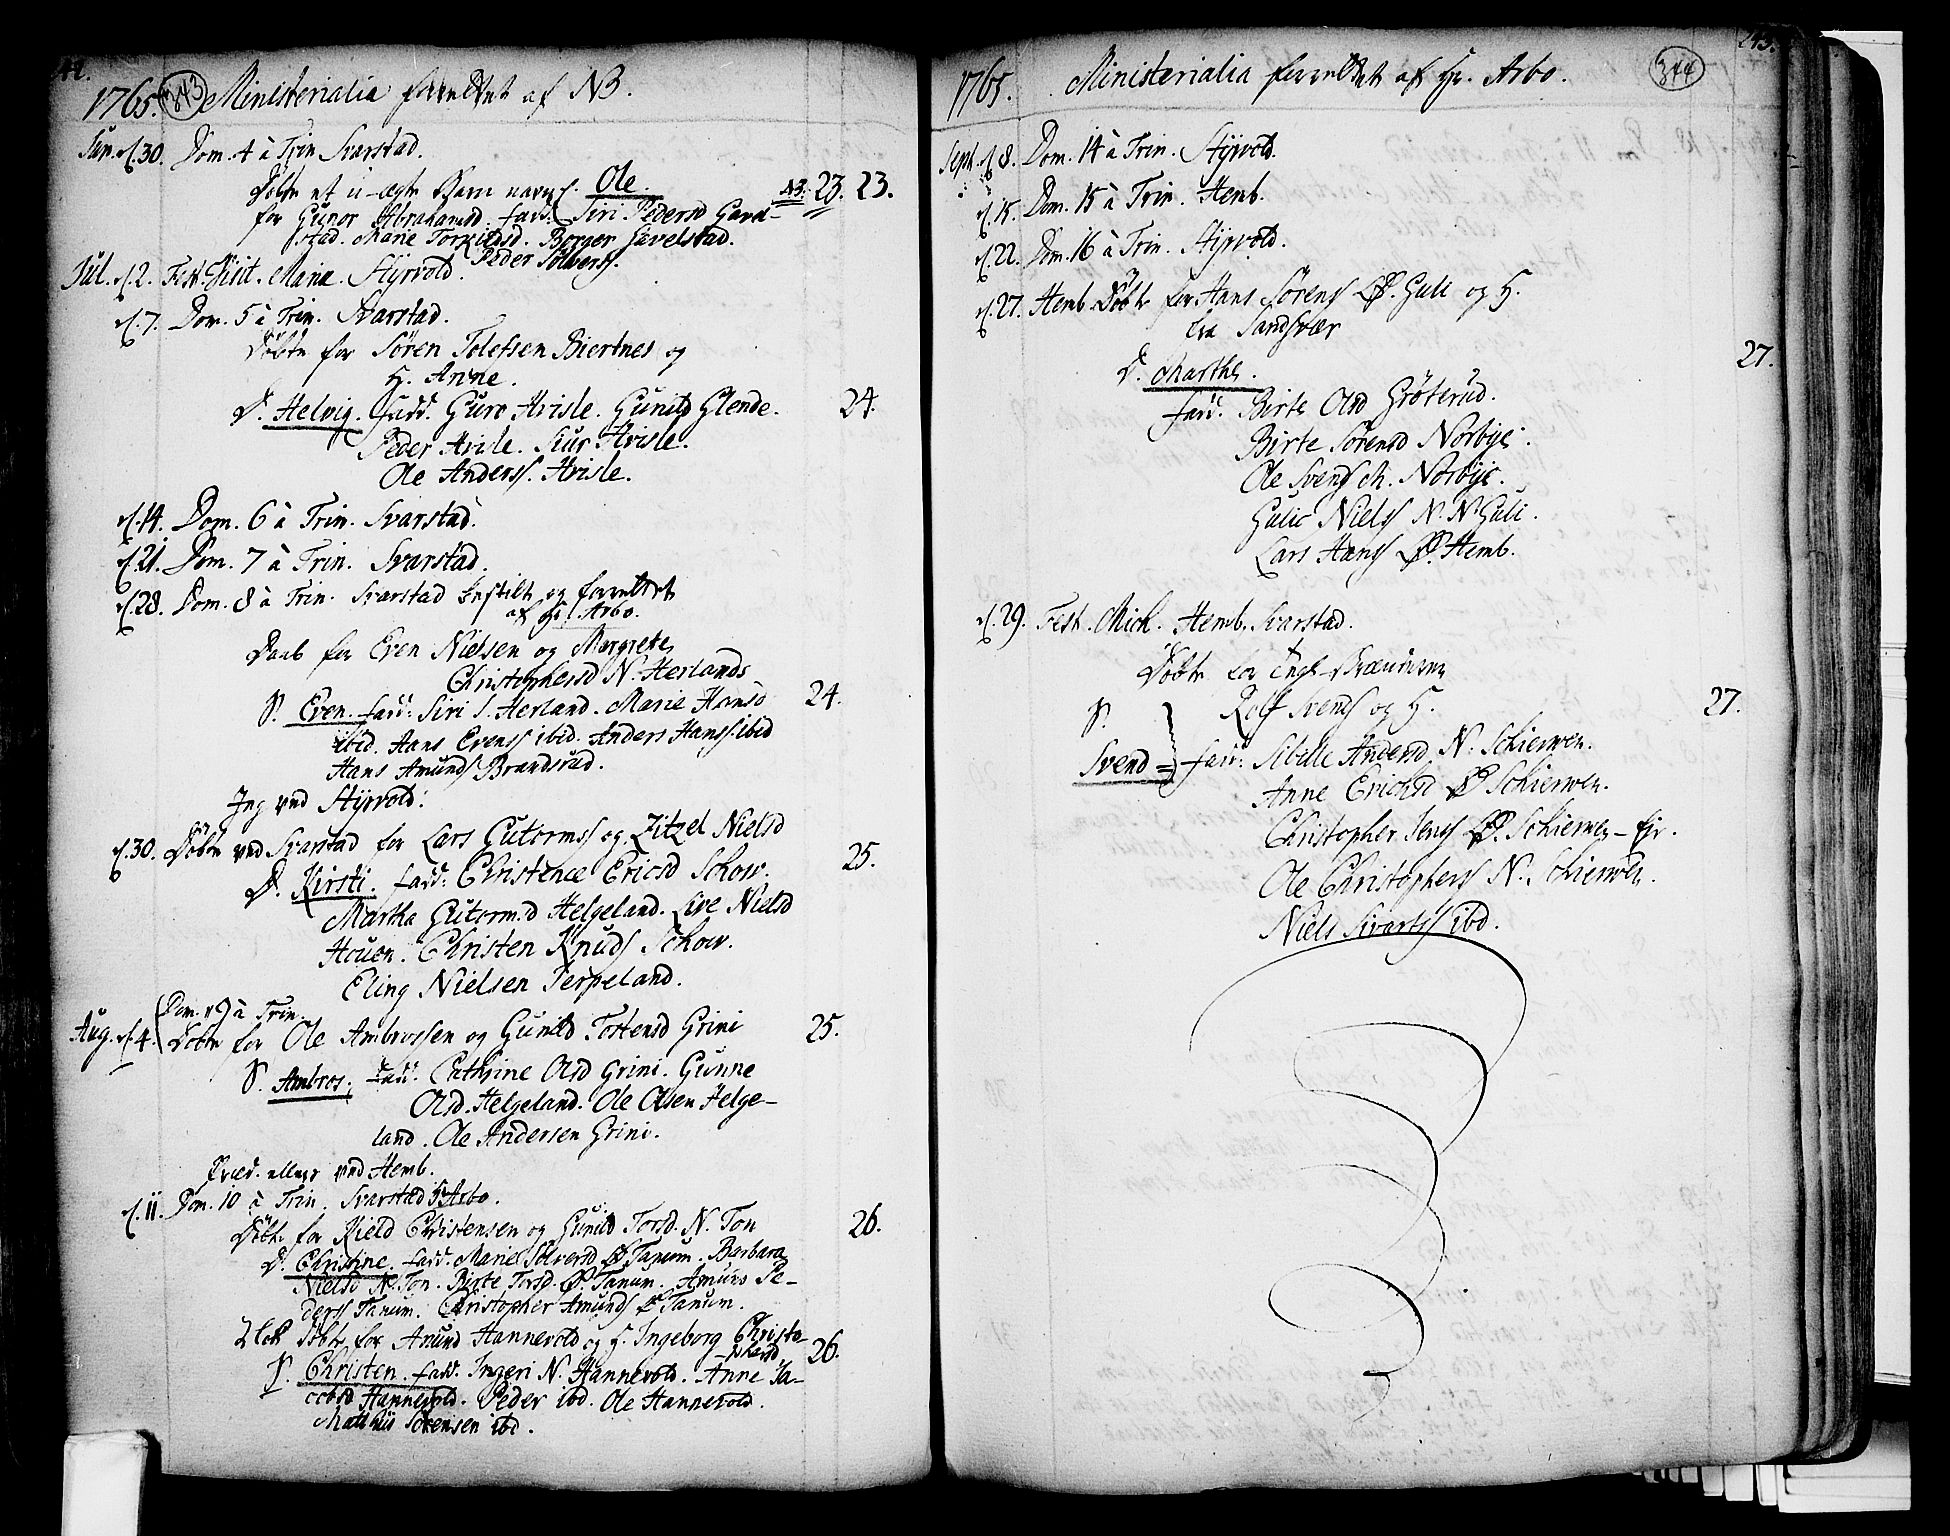 1765. 343 Ministerialia forrettet af NB.
Jun. d. 30. Dom. 4 à Trin Svarstad.
Døbte et u-ægte Barn navnl. Ole. NB. 23. 23.
for Gunor Abrahamsd. fadd: Siri Pedersd Gavel-
stad. Marie Torkildsd. Borger Gavelstad.
Peder Solvers.
Jul. d. 2. Fest. Visit. Mariæ. Styrvold.
d. 7. Dom. 5 à Trin. Svarstad.
Døbte for Søren Tolefsen Biertnes og
H. Anne.
D. Helvig. fadd. Guro Hvisle. Gunild Glende. 24.
Peder Hvisle. Siur Hvisle.
Ole Anderss. Hvisle.
d. 14. Dom. 6 à Trin. Svarstad.
d. 21. Dom. 7 à Trin. Svarstad.
d. 28. Dom. 8 à Trin. Svarstad bestilt og forrettet
af Hr. Arbo.
Daab for Even Nielsen og Margrete
Christophersd N. Herlands
S. Even. fadd: Siri S. Herland. Marie Hansd 24.
ibid. Hans Evenss ibid. Anders Hanss. ibid
Hans Amunds Brandsrud.
Jeg ved Styrvold.
d. 30. Døbte ved Svarstad for Lars Gutormss og Zitzel Nielsd
D. Kirsti. fadd: Christence Ericsd Schow. 25.
Martha Gutormsd Helgeland. Live Nielsd
Houen. Christen Knuds Schow.
Eling Nielsen Terpeland.
Dom. 9 à Trin.
Aug. d. 4. Døbte for Ole Ambrossen og Gunild Tostensd Grini 25.
S. Ambros. fadd. Cathrine Olsd Grini. Gunne
Olsd. Helgeland. Ole Olsen Helge-
land. Ole Andersen Grini.
Præd. ellers ved Hemb.
d. 11. Dom. 10 à Trin. Svarstad Hr Arbo.
Døbte for Kield Christensen og Gunild Torsd. N. Ton 26.
D. Christine. fadd: Marie Solversd Ø Tanum. Barbara
Nielsd N. Ton. Birte Torsd. Ø Tanum. Amund Pe-
ders Tanum. Christopher Amunds Ø Tanum.
Døbte for Amund Hannevold og H. Ingeborg Christo-
phersd 26.
S. Christen. fadd. Ingeri N. Hannevold. Anne Ja-
cobsd Hannevold. Peder ibd. Ole Hannevold.
Matthis Sørensen ibd.
1765. Ministerialia forrettet af Hr. Arbo. 344 243.
Sept. d. 8. Dom. 14 à Trin. Styrvold.
d. 15. Dom. 15 à Trin. Hemb.
d. 22. Dom. 16 à Trin. Styrvold.
d. 27. Hemb. Døbte for Hans Sørens Ø. Guli og H.
fra Sandsvær
D. Marthe. 27.
fadd. Birte Olsd Grøterud.
Birte Sørensd Norbye.
Ole Svends M. Norbye.
Gulic Niels N. N Guli.
Lars Hans Ø. Hemb.
d. 29. Fest. Mich. Hemb. Svarstad.
Døbte for
S. Rolf Svends og H. 27.
Svend fadd: Sibille Andersd N. Schierven.
Anne Erichsd Ø Schierven.
Christopher Jens Ø. Schierven - Eje.
Ole Christophers N. Schierven.
Niels Sivertss ibd.